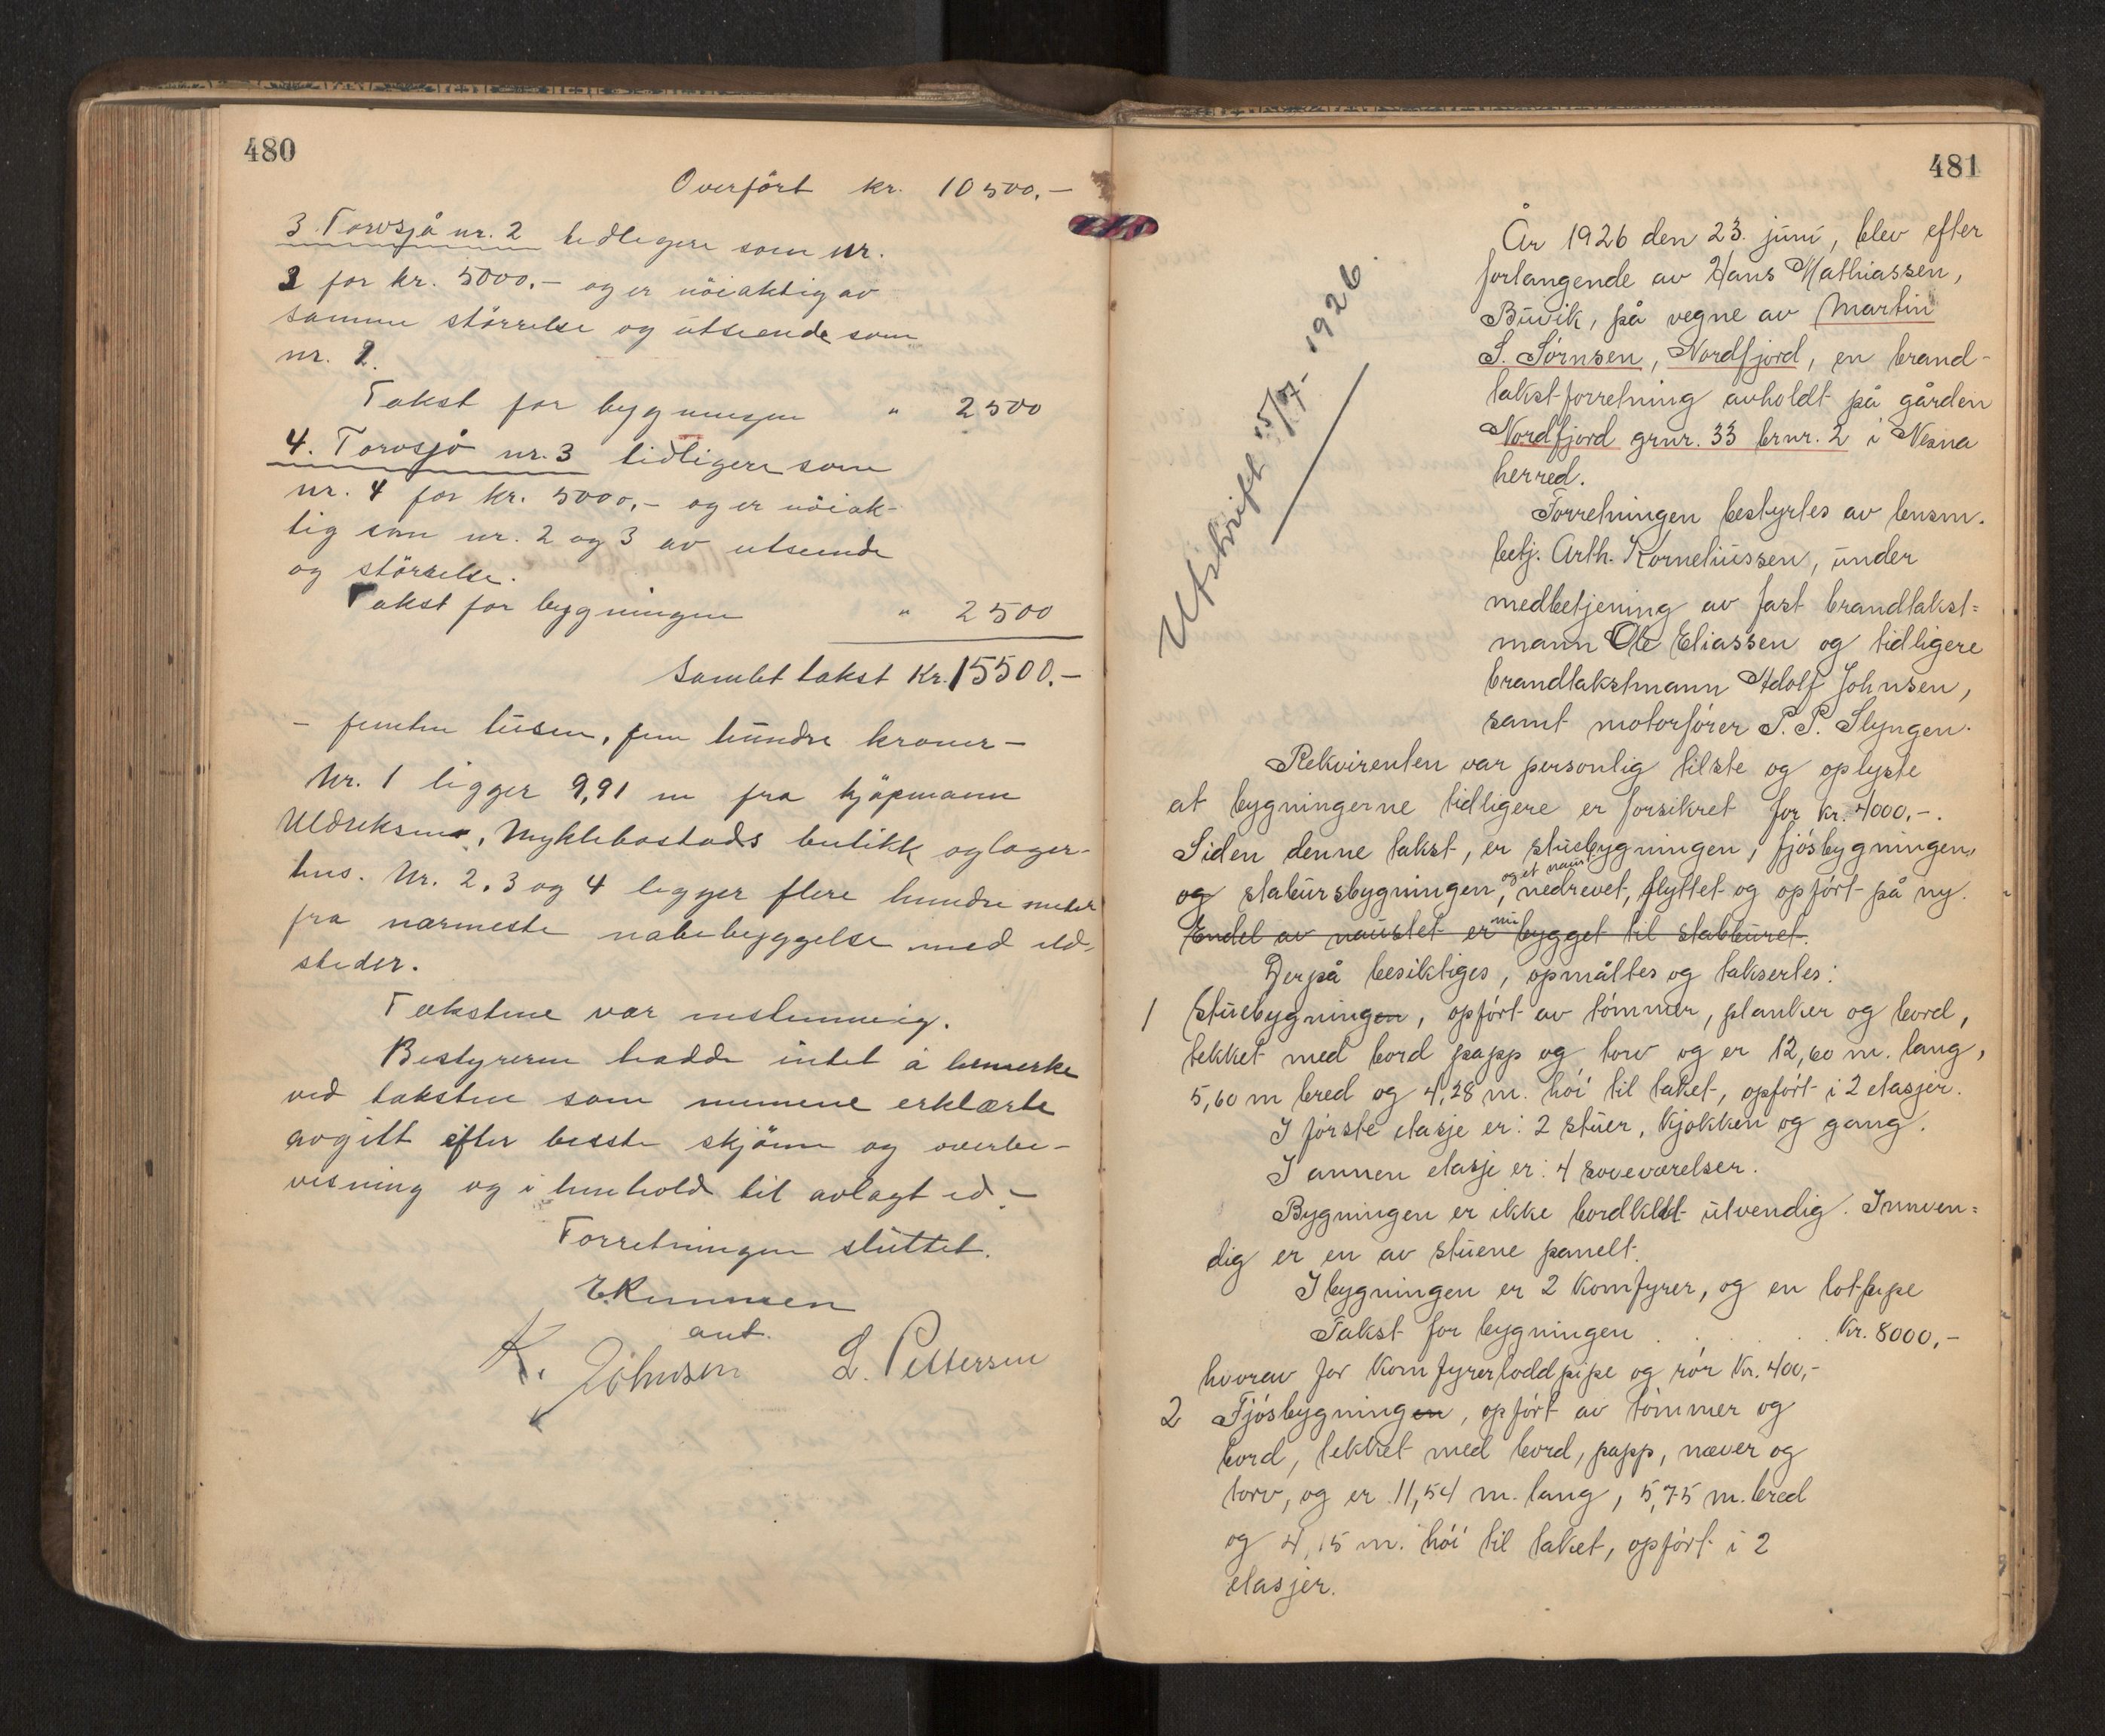 480
Overført kr. 10500,-
3. Torvsjå nr. 2 tidligere som nr.
3 for kr. 5000,- og er nöiaktig av
samme störrelse og utseende som
nr. 2.
Takst for bygningen " 2500
4. Torvsjå nr. 3 tidligere som
nr. 4 for kr. 5000,- og er nöiak-
tig som nr. 2 og 3 av utseende
og störrelse.
Takst for bygningen " 2500
Samlet takst Kr. 15500.-
- femten tusen, fem hundre kroner -
Nr. 1 ligger 9,91 m fra kjøpmann
Uldriksens, Myklebostads butikk og lager-
hus. Nr. 2, 3 og 4 ligger flere hundre meter
fra nærmeste nabobebyggelse med ild-
steder.
Takstene var enstemmig.
Bestyreren hadde intet å bemerke
ved taksten som mennene erklærte
avgitt efter beste skjönn og overbe-
visning og i henhold til avlagt ed.-
Forretningen sluttet.
ant.
K. Johnsen L. Pettersen
481
Utskrift 5/7- 1926.
År 1926 den 23. juni, blev efter
forlangende av Hans Mathiassen,
Buvik, på vegne av Martin
S. Sørnsen, Nordfjord, en brand-
takstforretning avholdt på gården
Nordfjord grnr. 33 brnr. 2 i Nesna
herred.
Forretningen bestyrtes av lensm.
betj. Arth. Korneliussen, under
medbetjening av fast brandtakst=
mann Ole Eliassen og tidligere
brandtakstmann Adolf Johnsen,
samt motorfører P. P. Slyngen.
Rekvirenten var personlig tilste og oplyste
at bygningerne tidligere er forsikret for kr. 4000,-.
Siden denne takst, er stuebygningen, fjósbygningen,
og et naust
og stabursbygningen, nedrevet, flyttet og opført på ny.
Endel av naustet er nu bygget til stabburet.
Derpå besiktiges, opmåltes og taksertes:
1 Stuebygningen, opført av tómmer, planker og bord,
tekket med bord papp og torv og er 12,60 m. lang,
5,60 m bred og 4,28 m. hói til taket, opført i 2 etasjer.
I fórste etasje er: 2 stuer, kjøkken og gang.
I annen etasje er: 4 soveværelser.
Bygningen er ikke bordkledt utvendig. Innven=
dig er en av stuene panelt.
I bygningen er 2 komfyrer, og en lotpipe
Takst for bygningen . . . . Kr. 8000,-
hvorav for komfyrer loddpipe og rór Kr. 400,-
2 Fjósbygningen, opfórt av tómmer og
bord, tekket med bord, papp, næver og
torv, og er 11,54 m. lang, 5,75 m. bred
og 4,15 m. hói til taket, opfórt i 2
etasjer.